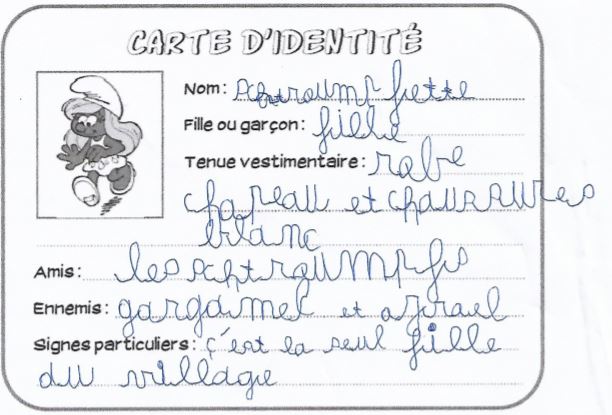 CARTE D'IDENTITÉ
Nom : schtroumpfette
Fille ou garçon : fille
Tenue vestimentaire : robe
chapeau et chaussures
blanc
Amis : les schtroumpfs
Ennemis : gargamel et azrael
Signes particuliers : c'est la seul fille
du village